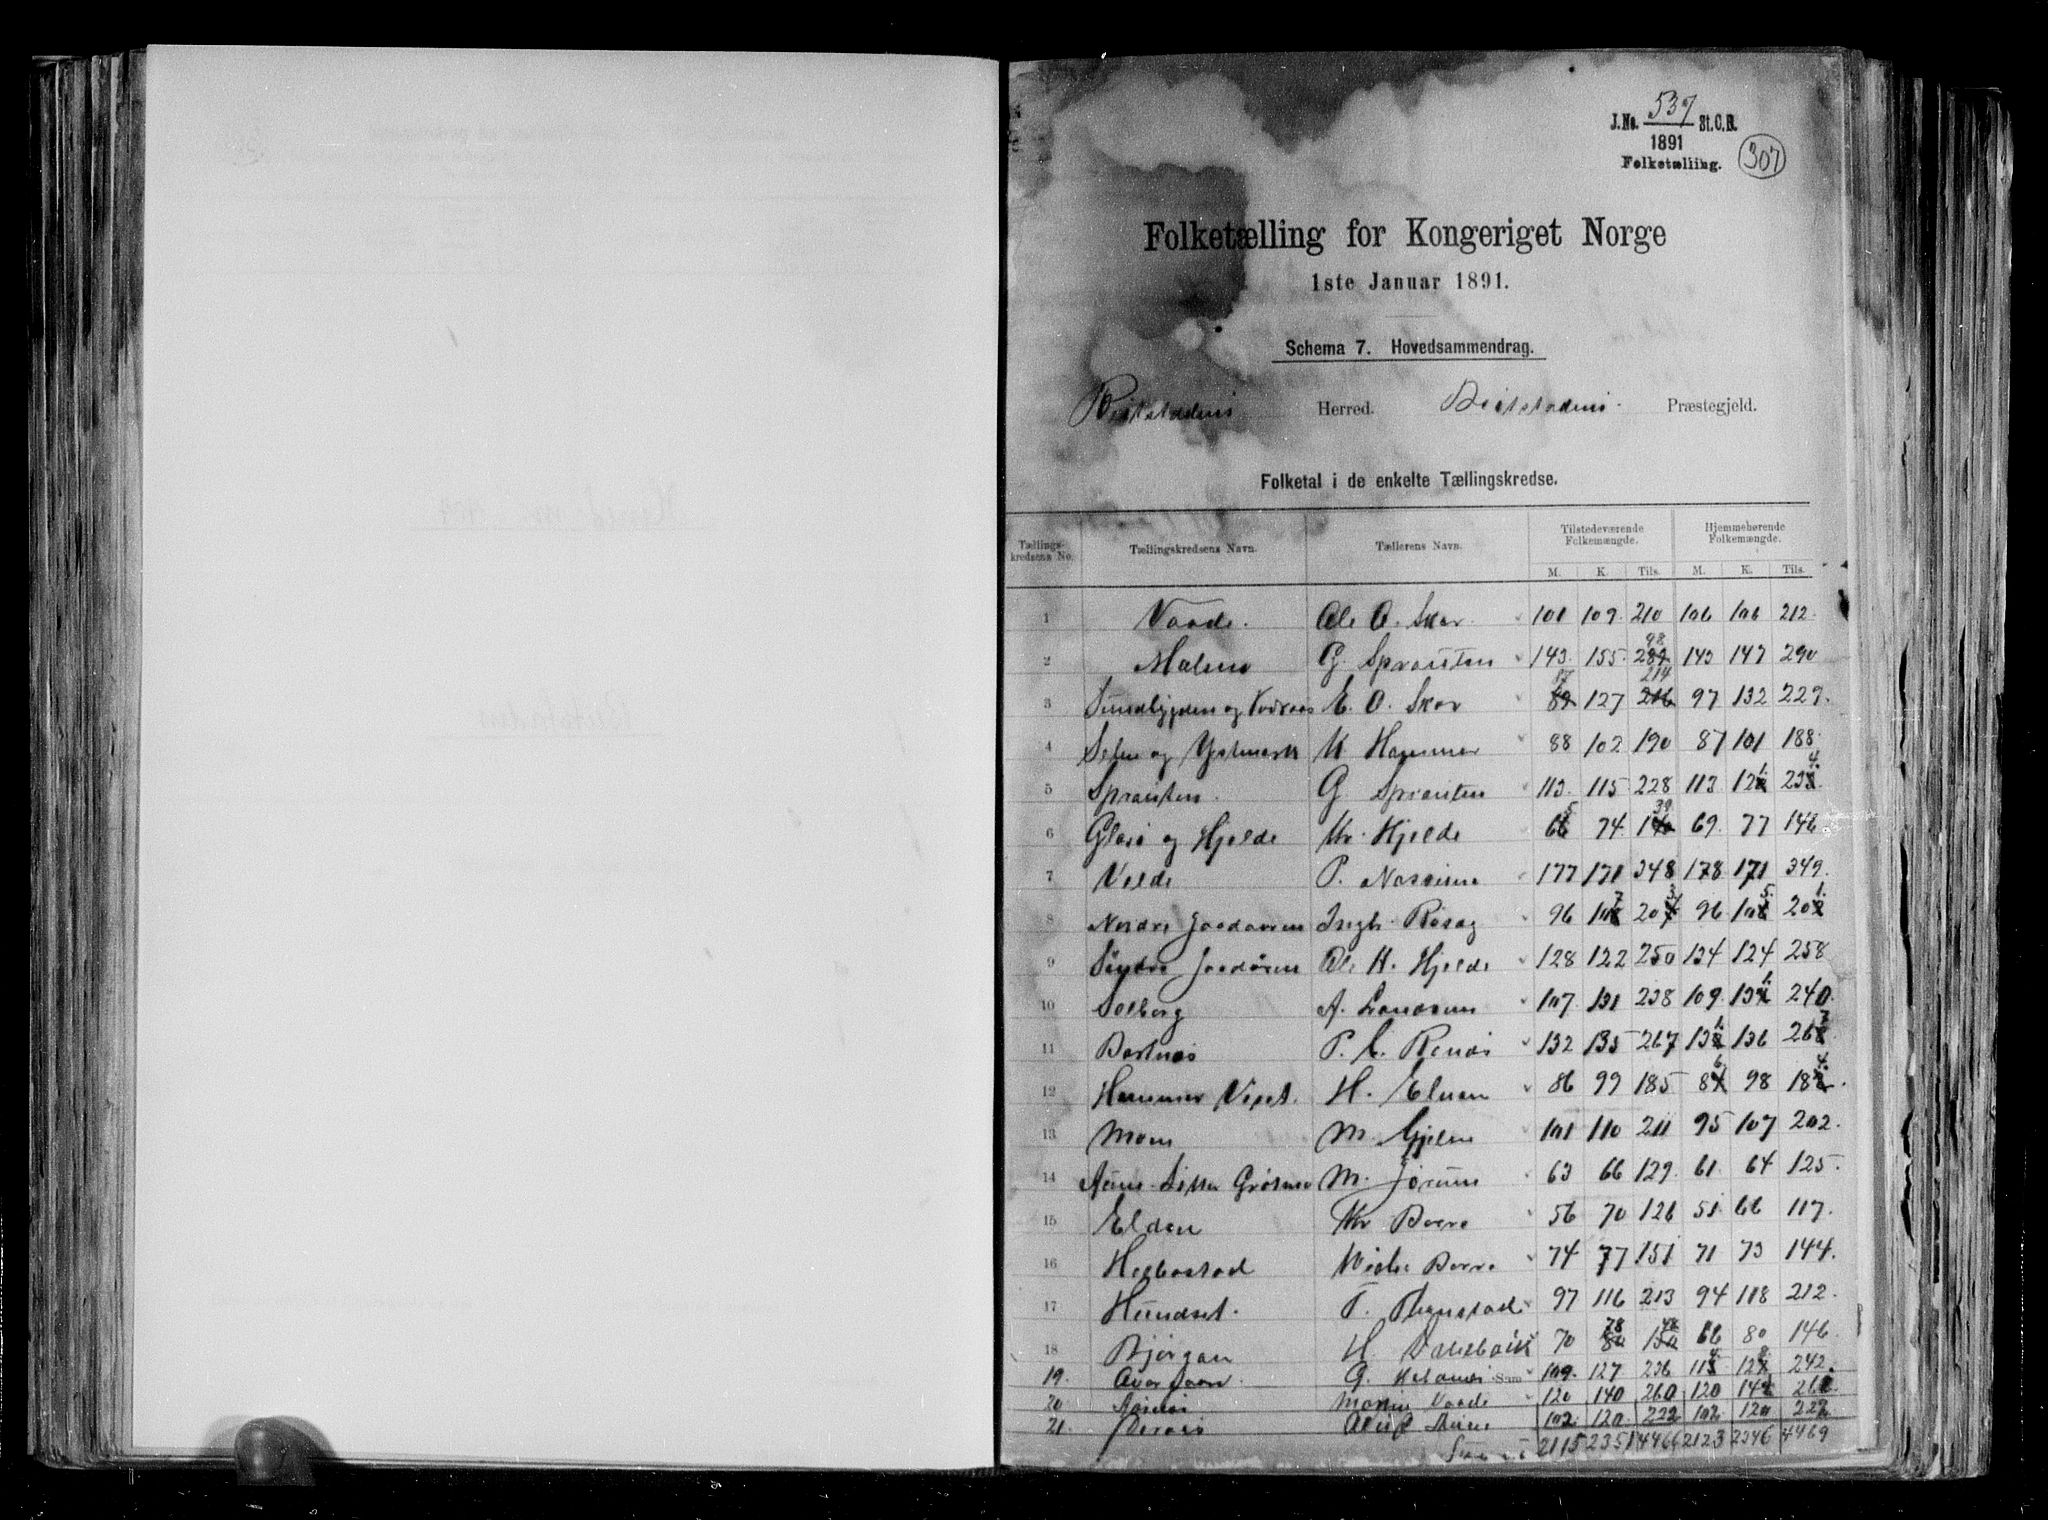 537
J.No. St.C.B.
1891
Folketælling.
307
Folketælling for Kongeriget Norge
1ste Januar 1891.
Schema 7. Hovedsammendrag.
Beitstadens Herred. Beitstadens Præstegjeld.
Folketal i de enkelte Tællingskredse.
Tællings-kredsens No. Tællingskredsens Navn. Tællerens Navn. Tilstedeværende Folkemængde. Hjemmehørende Folkemængde.
M. K. Tils. M. K. Tils.
1 Vaade. Ole O. Skor 101 109 210 106 106 212
2 Malm G. Sprauten 143 155 298 143 147 290
3 E. O. Skor 87 127 214 97 132 229
4 Selm og Ystmark K. Hammer 88 102 190 87 101 188
5 Sprauten G. Sprauten 113 115 228 113 121 234
6 og Hjelde Kr. Hjelde 65 74 139 69 77 146
7 Velde P. 177 171 348 178 171 349
8 Nordre 96 107 203 96 105 201
9 Søndre Ole H. Hjelde 128 122 250 134 124 258
10 Solberg A. 107 131 238 109 131 240
11 Bartnes P. E. 132 135 267 131 136 267
12 Hammer Vest. H. Elnan 86 99 185 86 98 184
13 Moen M. Gjelm 101 110 211 95 107 202
14 M. Jørum 63 66 129 61 64 125
15 Elden Kr 56 70 126 51 66 117
16 Helbostad 74 77 151 71 73 144
17 Hundset. T. 97 116 213 94 118 212
18 Bjørgan H. 70 78 148 66 80 146
19. G. 109 127 236 114 128 242
20 Vaade 120 140 260 120 141 261
21. 102 120 222 102 120 222
2115 2351 4466 2123 2346 4469